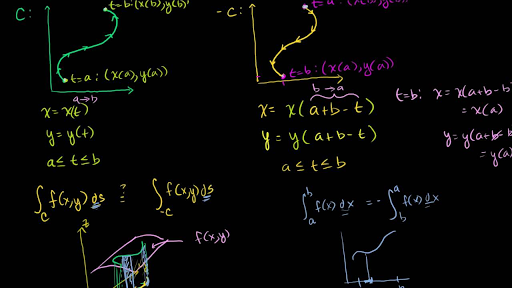 C:
t=b:(x(b),y(b))
t=a:(x(a),y(a))
a→b
x=x(t)
y=y(t)
a≤t≤b
-C:
t=b:(x(a),y(a))
b→a
x=x(a+b-t)
y=y(a+b-t)
a≤t≤b
t=b: x=x(a+b-b
=x(a)
y=y(a+b-b
=y(a)
∫_C f(x,y)ds ?= ∫_-C f(x,y)ds
∫_a^b f(x)dx = -∫_b^a f(x)dx
z
f(x,y)